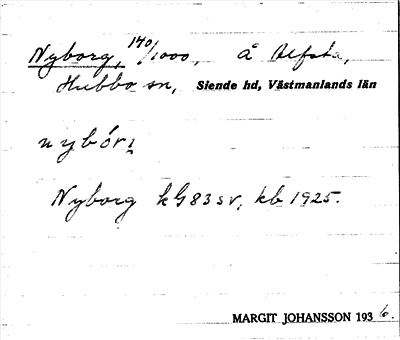 Nyborg, 140/1000, å Alfsta,
Hubbo sn, Siende hd, Västmanlands län
nybór:
Nyborg kG83sv, kb 1925.
MARGIT JOHANSSON 1936.